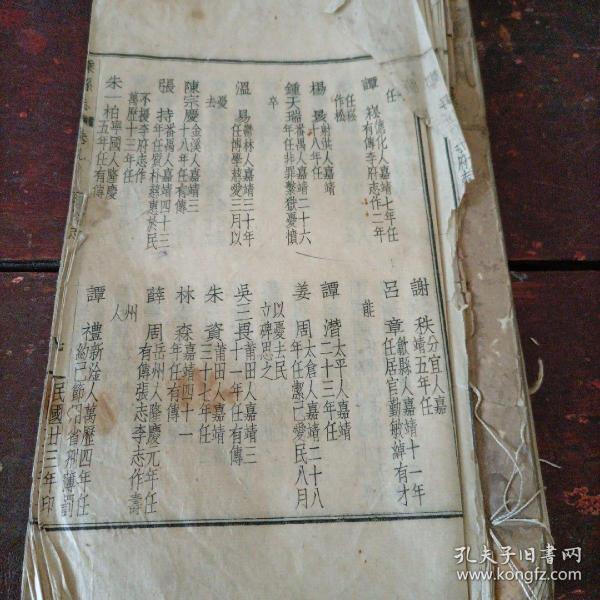 任
譚 棌 德化人嘉靖七年任
有傳李府志作二年
任棌
作松
楊 最 射洪人嘉靖
十八年任
鍾天瑞 番禺人嘉靖二十六
年任非罪繫獄憂憤
卒
溫 易 鬱林人嘉靖三十年
任博學慈愛三月以
憂
去
陳宗慶 金溪人嘉靖三
十八年任有傳
張 持 番禺人嘉靖四十三
年任質朴慈惠於民
不擾李府志作
萬歷十三年任
朱一柏 寧國人隆慶
五年任有傳
謝 秩 分宜人嘉
靖五年任
呂 章 歙縣人嘉靖十一年
任居官勤敏綽有才
能
譚 潛 太平人嘉靖
二十三年任
姜 周 太倉人嘉靖二十八
年任潔己愛民八月
以憂去民
立碑思之
吳三畏 莆田人嘉靖三
十一年任有傳
朱 資 莆田人嘉靖
三十七年任
林 森 嘉靖四十一
年任有傳
薛 周 岳州人隆慶元年任
有傳張志李志作壽
州
人
譚 禮 新淦人萬歷四年任
約己節用省刑薄罰
民國廿三年印
李府志
孔夫子旧书网
www.kongfz.com